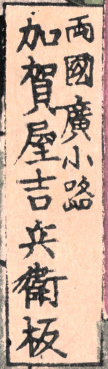 両國廣小路
加賀屋吉兵衞板